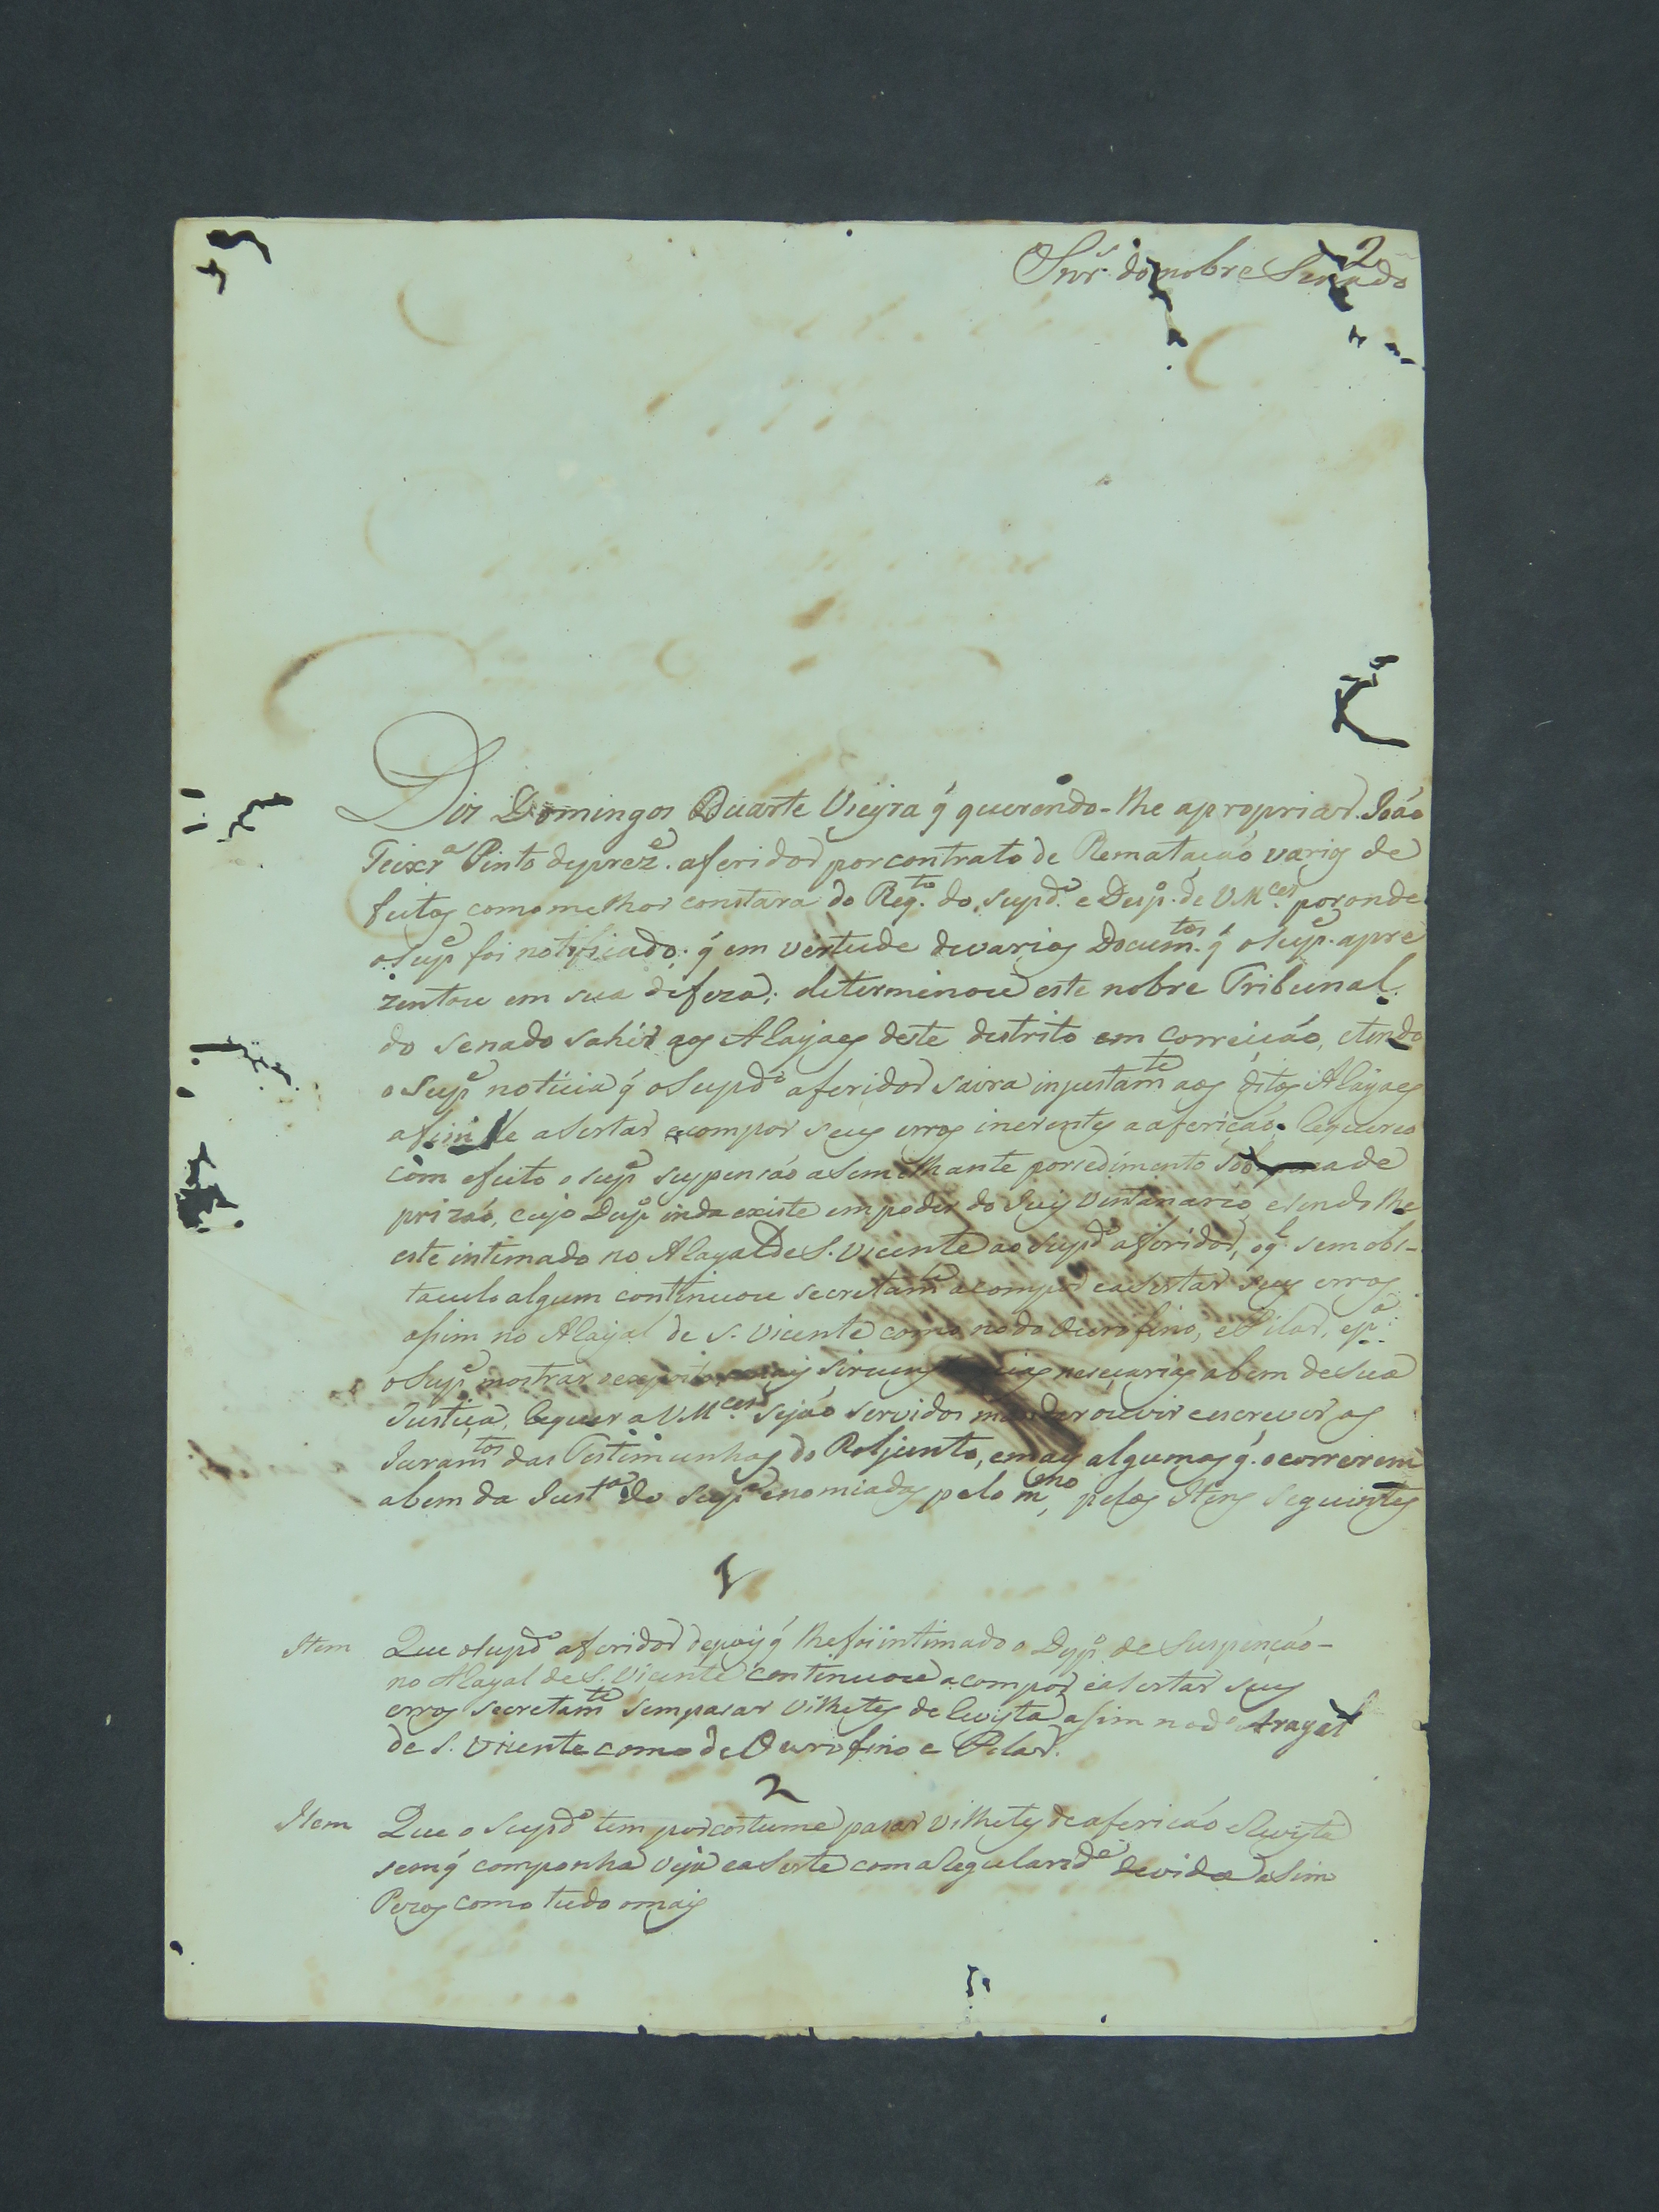 2
Snr.s do nobre Senado
Dis Domingos Duarte Vieyra q̃ querendo-lhe apropriar João
Teixr.a Pinto de prez.e aferidor por contrato de Remataçáo varios de
feitos como melhor constara do Reg.to do supd.o e Desp.o de V.M.ces por onde
o Sup.e foi notificado; q̃ em vertude de varios Docum.tos q̃ o Sup.e apre
zentou em sua defeza; determinou este nobre Tribunal
do Senado sahir aos Alayaes deste destrito em Correiçáo, e tendo
o Sup.e noticia q̃ o Supd.o aferidor saira injustam.te aos ditos Alayaes
afim de asertar e compor seus erros inerentes a afericáo. Requereo
com efeito o sup.e suspensáo a semelhante porsedimento sob pena de
prizáo, cujo Desp.o inda existe em poder do Juis Vintanario, e sendo lhe
este intimado no Alayal de S. Vicente ao supd.o aferidor, o q.l sem obs-
taculo algum continuou secretam.te a compor e asertar seus erros
asim no Alayal de S. Vicente como no do Ourofino, e Pilar, e p.a
o Sup.e mostrar o exposto mais nesecarias a bem de sua
Justiça, Requer a V.M.ces sejáo servidos mandar ouvir e escrever os
Juram.tos das Testimunhas do Rol junto, e mais algumas q̃ ocorrerem
a bem da Just.a do Sup.e enomiadas pelo m.mo, pelos Itens seguintes
1
Item Que o supd.o aferidor depois q̃ lhe foi intimado o Desp.o de Suspençáo-
no Alayal de S. Vicente continuou a compor e asertar seus
erros secretam.te sem pasar Vilhetes de Revista asim no d.o Arayal
de S. Vicente como de Ourofino e Pilar.
2
Item Que o Supd.o tem por costume pasar Vilhetes de afericáo e Revista
sem q̃ componha veja e aserte com a Regularid.e devida asim
Pezos como tudo o mais